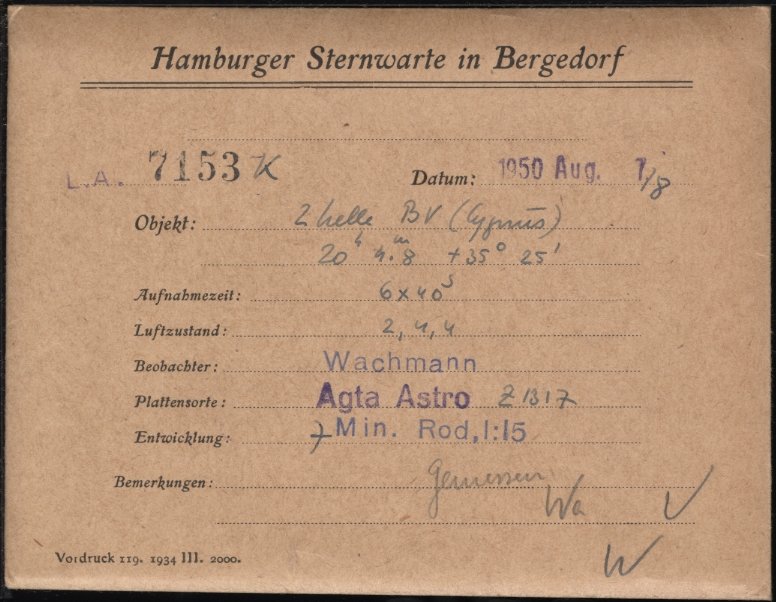 Hamburger Sternwarte in Bergedorf
L.A. 7153 K Datum: 1950 Aug. 7/8
Objekt: 2 helle BV (Cygnus)
20ʰ 4.ᵐ8 +35° 25'
Aufnahmezeit: 6x40ˢ
Luftzustand: 2, 4, 4
Beobachter: Wachmann
Plattensorte: Agfa Astro Z 1317
Entwicklung: 7 Min. Rod,1:15
Bemerkungen: Gemessen
Wa V
W
Vordruck 119. 1934 III. 2000.